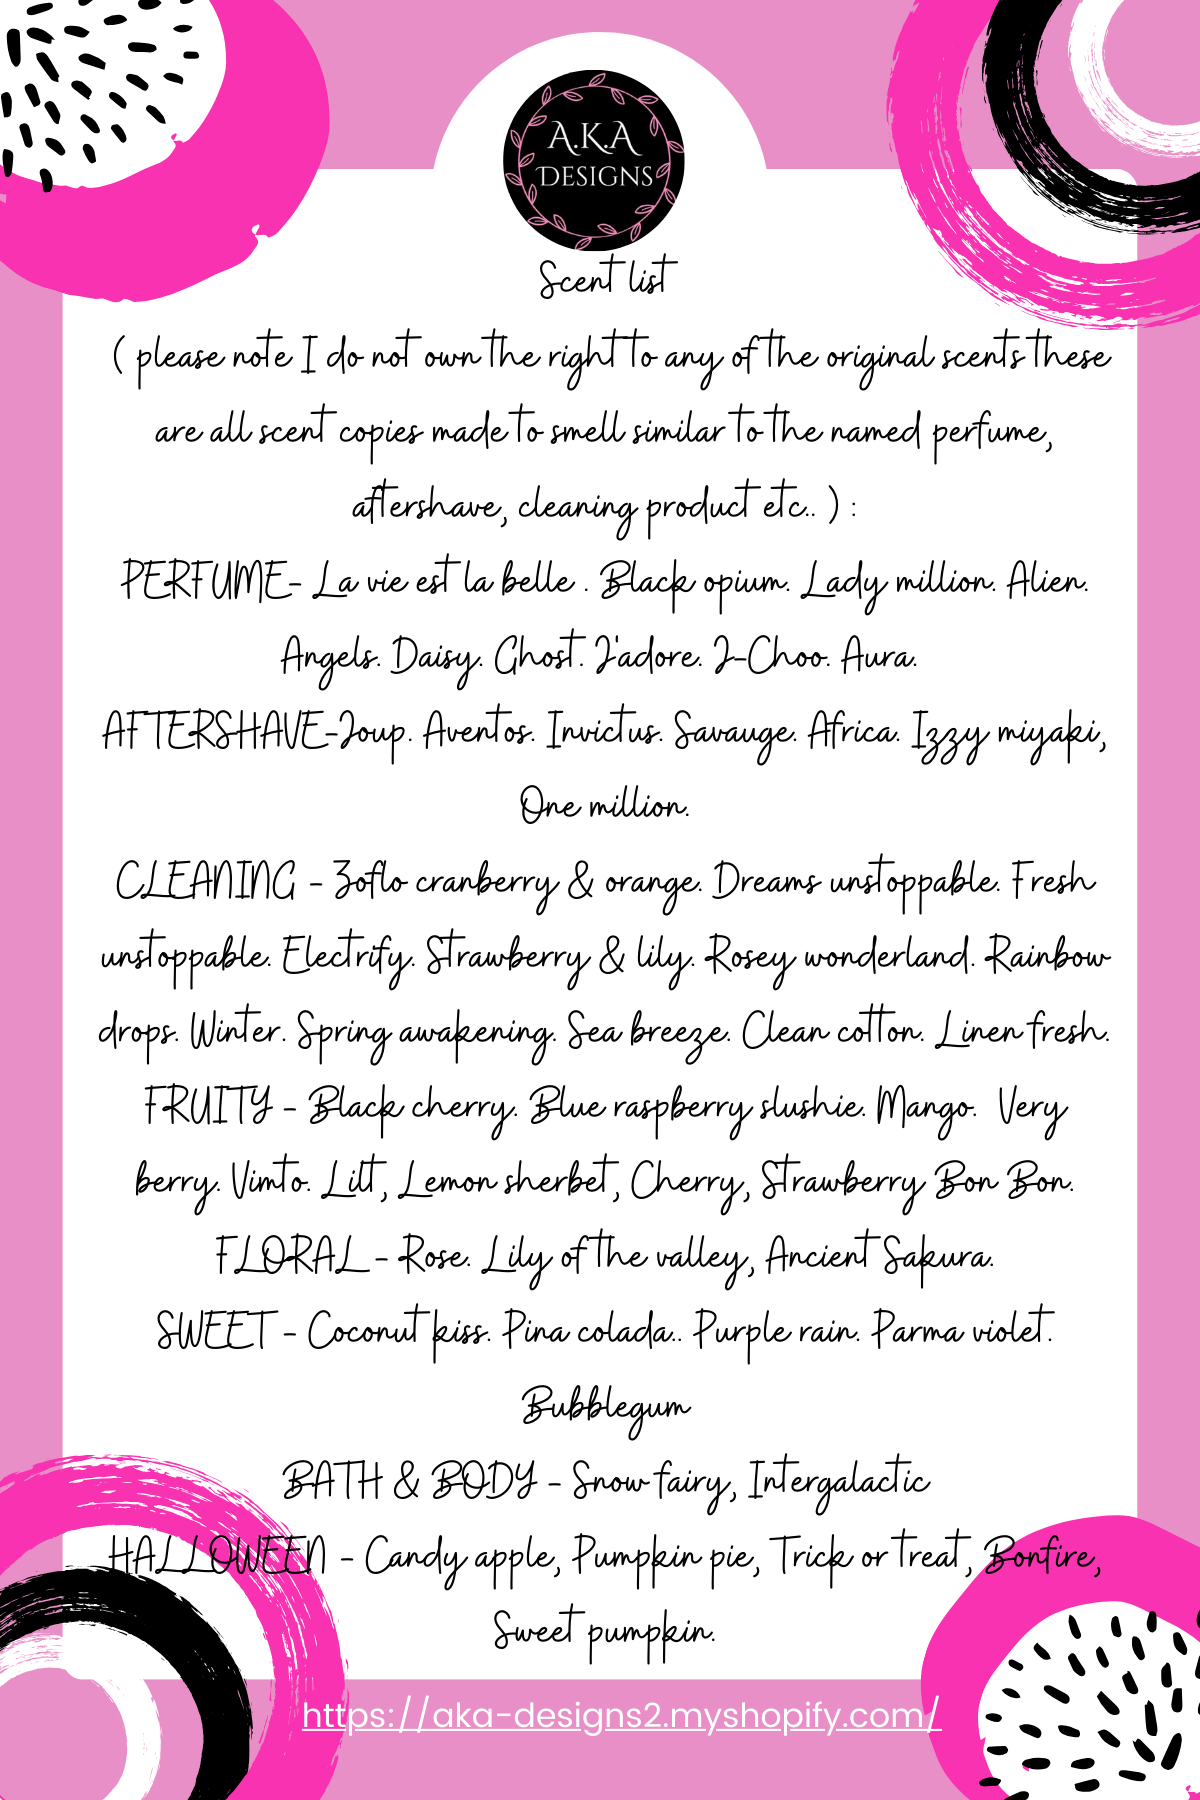 A.K.A
DESIGNS
Scent list
( please note I do not own the right to any of the original scents these
are all scent copies made to smell similar to the named perfume,
aftershave, cleaning product etc.. ) :
PERFUME- La vie est la belle . Black opium. Lady million. Alien.
Angels. Daisy. Ghost. J'adore. J-Choo. Aura.
AFTERSHAVE-Joup. Aventos. Invictus. Savauge. Africa. Izzy miyaki,
One million.
CLEANING - Zoflo cranberry & orange. Dreams unstoppable. Fresh
unstoppable. Electrify. Strawberry & lily. Rosey wonderland. Rainbow
drops. Winter. Spring awakening. Sea breeze. Clean cotton. Linen fresh.
FRUITY - Black cherry. Blue raspberry slushie. Mango.  Very
berry. Vimto. Lilt, Lemon sherbet, Cherry, Strawberry Bon Bon.
FLORAL - Rose. Lily of the valley, Ancient Sakura.
SWEET - Coconut kiss. Pina colada.. Purple rain. Parma violet.
Bubblegum
BATH & BODY - Snow fairy, Intergalactic
HALLOWEEN - Candy apple, Pumpkin pie, Trick or treat, Bonfire,
Sweet pumpkin.
https://aka-designs2.myshopify.com/